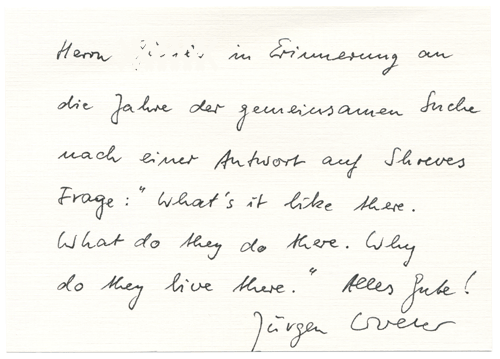 Herrn in Erinnerung an
die Jahre der gemeinsamen Suche
nach einer Antwort auf Shreves
Frage: "What's it like there.
What do they do there. Why
do they live there." Alles Gute!
Jürgen